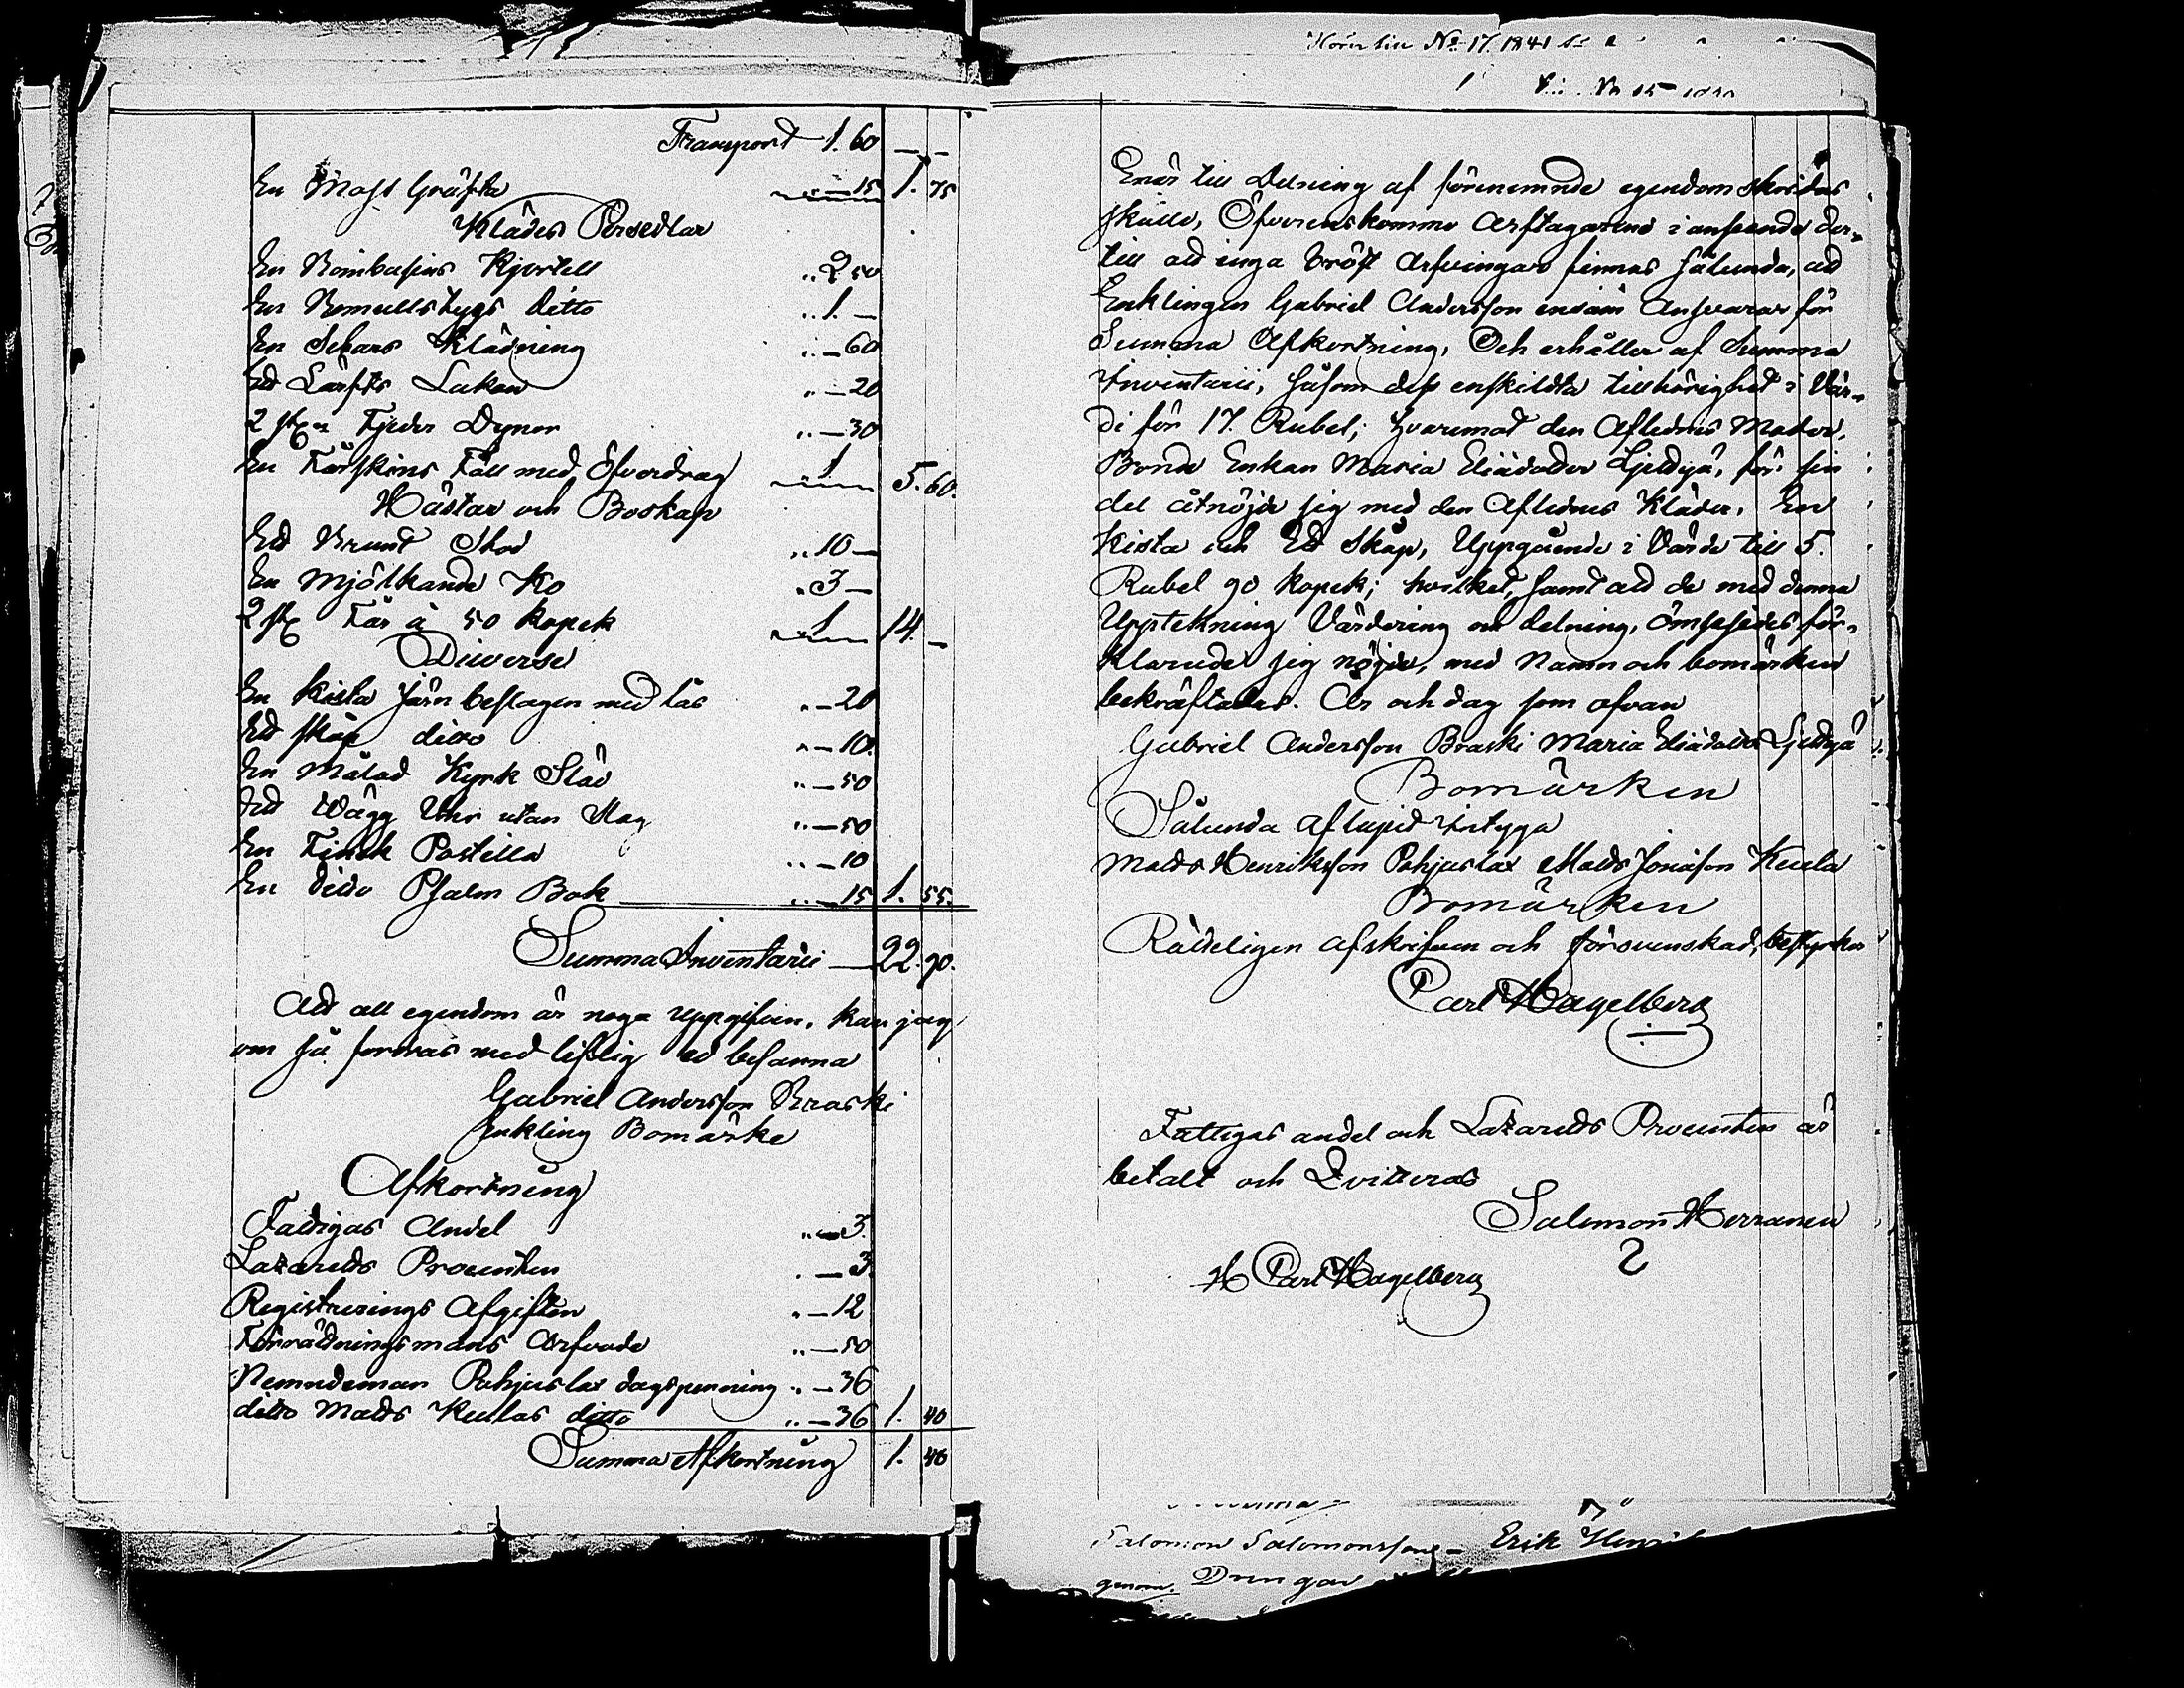 Transport 1. 60 — —
En Moss Gräfta " — 15 1. 75
Klädes Persedlar
En Bombasins Kjortell " 2 50
En Bomullstygs ditto " 1. —
En Klädning " — 60
Ett Lärfts Lakan " — 20
2 st Fjeder Dynor " — 30
En Fårskins Fäll med Öfverdrag 1 5. 60.
Hästar och Boskap
Ett Brunt Stod " 10 —
En Mjölkande Ko " 3 —
2 st Får à 50 kopek 1 14. —
Diverse
En Kista Järn beslagen med lås " — 20
Ett skåp ditto " — 10.
En Målad Kyrk Släd " — 50
Ett Wägg Uhr utan Slag " — 50
En Finsk Postilla " — 10
En ditto Psalm Bok " — 15 1. 55.
Summa Inventarii — 22. 90.
Att all egendom är noga uppgifven, kan jag,
om så fordras med liflig ed besanna
Gabriel Andersson Braski
Enkling Bomärke
Afkortning
Fattigas Andel " — 3.
Lazaretts Procenten " — 3.
Registrerings Afgiften " — 12
Förrättningsmans Arfvode " — 50
Nemndeman Pohjuslax dagspenning " — 36
ditto Matts Keulas ditto " — 36 1. 40
Summa Afkortning 1. 40
No 17. 1841
Enär till Delning af förenemnde egendom skridas
skulle, Öfverenskommo Arftagarene i anseende der-
till att inga Bröst Arfvingar finnas sålunda, att
Enklingen Gabriel Andersson ensam Ansvarar för
Summa Afkortning, Och erhåller af Summa
Inventarii, såsom dess enskildta tillhörighet i Vär-
de för 17. Rubel; hvaremot den Aflednes Moder,
Bonde Enkan Maria Eliædotter för sin
del åtnöjde sig med den Aflednes Kläder, En
Kista och Ett Skåp, Uppgående i Värde till 5.
Rubel 90 kopek; hvilket, samt att de med denna
Upptekning Värdering och delning, ömsesides för-
klarade sig nöjde, med Namn och bomärken
bekräftades. År och dag som ofvan
Gabriel Andersson Braski Maria Eliædotter
Bomärken
Sålunda aflupit Intyga
Matts Henriksson Pohjuslax Matts Jonasson Keula
Bomärken
Rätteligen afskrifven och försvenskad, bestyrker
Carl Hagelberg
Fattigas andel och Lazaretts Procenten är
betalt och Qvitteras
Salomon Herranen
Carl Hagelberg
Salomon Salomonsson — Erik
genom. Drengar